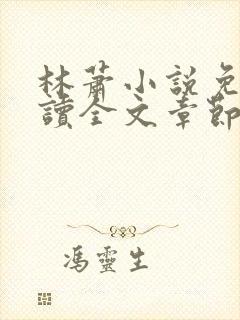 林蕭小說免
讀全文章節
馮靈生